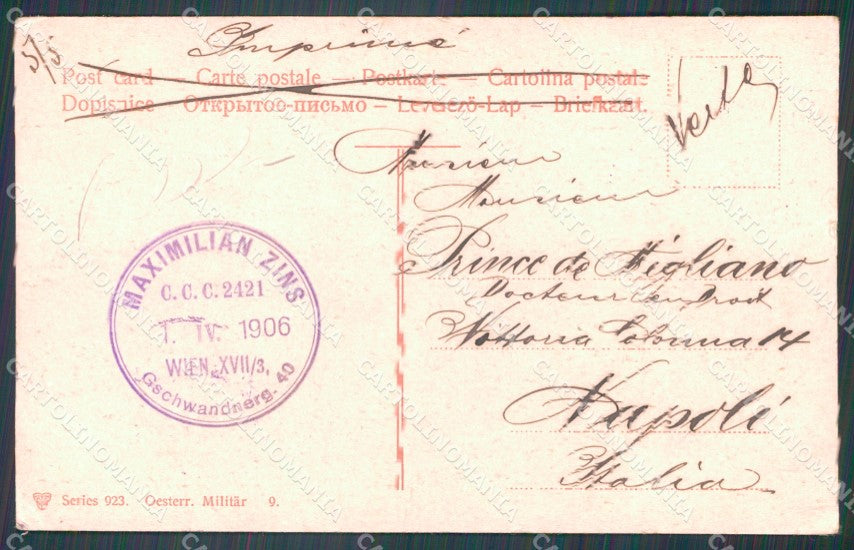 5/5
Imprimé
Post card — Carte postale — Postkarte — Cartolina postale
Dopisnice — Открытое-письмо — Levelező-Lap — Briefkaart.
Verte
Monsieur
Monsieur
Prince de Migliano
Docteur en Droit
Vottoria Colonna 14
Napoli
Italia
MAXIMILIAN ZINS
C. C. C. 2421
1. IV. 1906
WIEN, XVII/3,
Gschwandnerg. 40
Series 923. Oesterr. Militär 9.
CARTOLINOMANIA